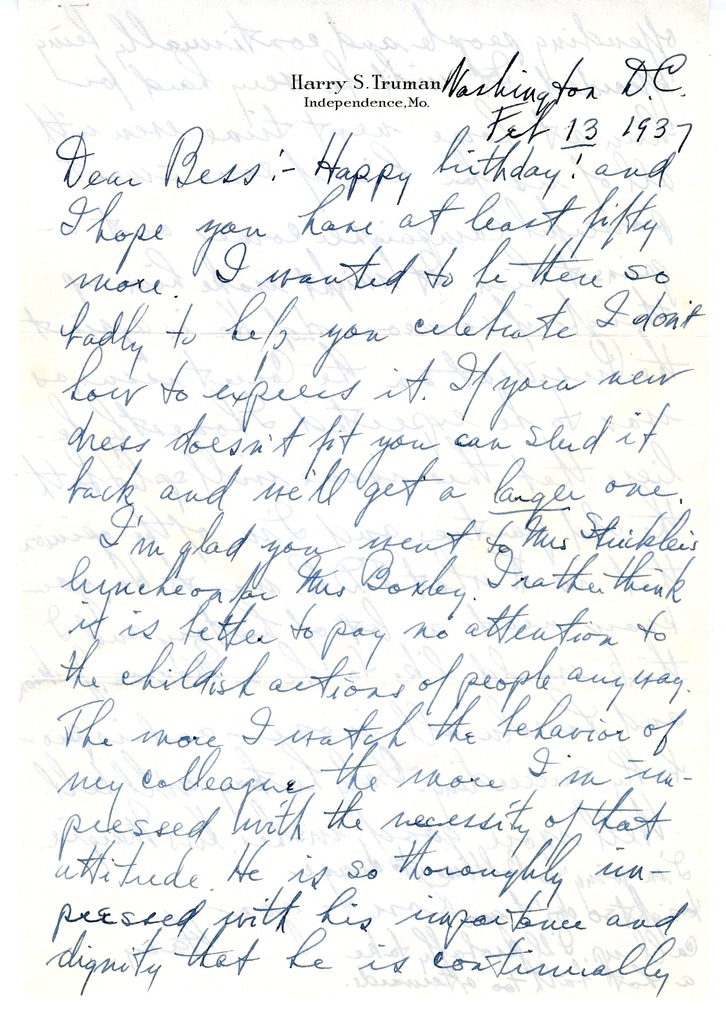 Harry S. Truman
Independence, Mo.
Washington D.C.
Feb 13 1937
Dear Bess:- Happy birthday! and
I hope you have at least fifty
more. I wanted to be there so
badly to help you celebrate I don't
how to express it. If your new
dress doesn't fit you can send it
back and we'll get a larger one.
I'm glad you went to Mrs
luncheon for Mrs Boxley. I rather think
it is better to pay no attention to
the childish actions of people anyway.
The more I watch the behavior of
my colleague the more I'm im-
pressed with the necessity of that
attitude. He is so thoroughly im-
pressed with his importance and
dignity that he is continually